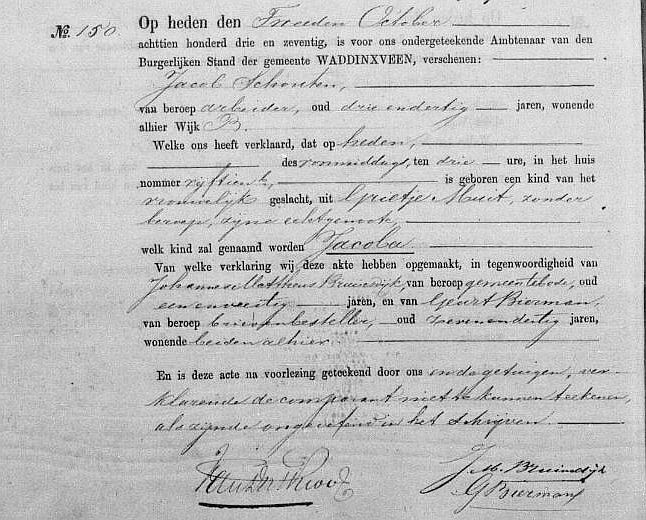 No. 150.
Op heden den Tweeden October
achttien honderd drie en zeventig, is voor ons ondergeteekende Ambtenaar van den
Burgerlijken Stand der gemeente WADDINXVEEN, verschenen:
Jacob Schouten,
van beroep arbeider, oud drie endertig jaren, wonende
alhier Wijk B.
Welke ons heeft verklaard, dat op heden,
des voormiddags, ten drie ure, in het huis
nommer vijftien, is geboren een kind van het
vrouwelijk geslacht, uit Grietje Muit, zonder
beroep, zijne echtgenoote,
welk kind zal genaamd worden Jacoba
Van welke verklaring wij deze akte hebben opgemaakt, in tegenwoordigheid van
Johannes Mattheus Bruindijk, van beroep gemeentebode, oud
een en veertig jaren, en van Geurt Bierman,
van beroep brievenbesteller, oud zeven en dertig jaren,
wonende beiden alhier
En is deze acte na voorlezing geteekend door ons en de getuigen, ver-
klarende de comparant niet te kunnen teekenen,
als zijnde ongeoefend in het schrijven.
J. M. Bruindijk
G Bierman